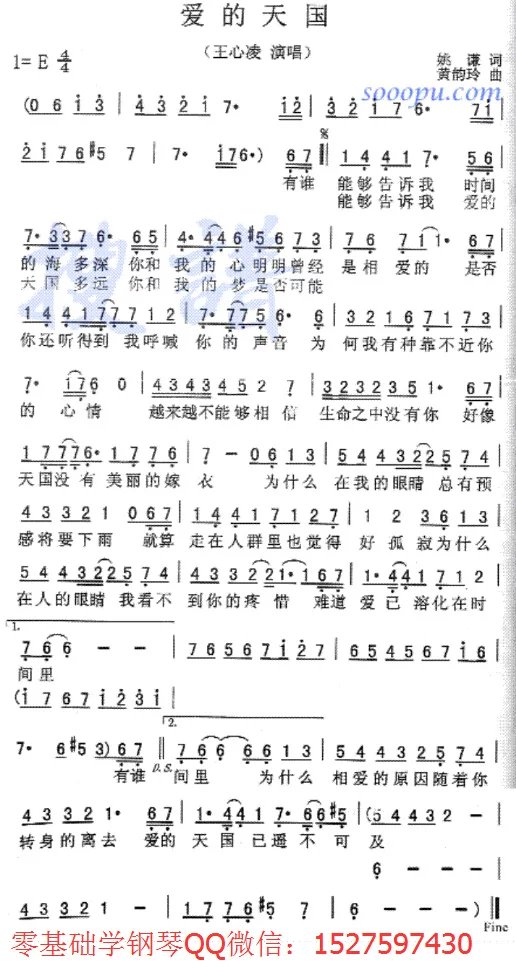 爱的天国
（王心凌 演唱）
1= E 4/4
姚 谦 词
黄韵玲 曲
sooopu.com
(0 6 1 3 | 4 3 2 1 7· 1 2 | 3 2 1 7 6· 7 1 |
2 1 7 6 #5 7 | 7· 1 7 6·) 6 7 || 1 4 4 1 7· 5 6 |
有谁 能够告诉我 时间
能够告诉我 爱的
7· 3 3 7 6· 6 5 | 4· 4 4 6 #5 6 7 3 | 7 6 7 1 1· 6 7 |
的海多深 你和 我的心明明曾经 是相爱的 是否
天国多远 你和 我的梦是否可能
1 4 4 1 7 7 7 1 2 | 3 3 2 1 7 6 | 3 2 1 6 7 1 7 3 |
你还听得到 我呼喊 你的声音 为 何我有种靠不近你
7· 1 7 6 0 | 4 3 4 3 4 5 2 7 | 3 2 3 2 3 5 1· 6 7 |
的 心情 越来越不能够相信 生命之中没有你 好像
1 7 7 7 6· 1 7 7 6 | 7 - 0 6 1 3 | 5 4 4 3 2 2 5 7 4 |
天国没有美丽的嫁 衣 为什么 在我的眼睛 总有预
4 3 3 2 1 0 6 7 | 1 4 4 1 7 1 2 7 | 1 2 3 6 1 3 |
感将要下雨 就算 走在人群里也觉得 好孤寂为什么
5 4 4 3 2 2 5 7 4 | 4 3 3 2 2 1· 1 6 7 | 1· 4 4 1 7 1 7 |
在人的眼睛 我看不 到你的疼惜 难道 爱已溶化在时
1.
7 6 6 - - | 7 6 5 6 5 7 1 2 7 | 6 5 4 5 6 7 1 6 |
间里
(1 7 6 7 1 2 3 1 |
2.
7· 6 #5 3) 6 7 || 7 6 6 6 6 1 3 | 5 4 4 3 2 2 5 7 4 |
有谁 D.S. 间里 为什么 相爱的原因随着你
4 3 3 2 1· 6 7 | 1· 4 4 1 7· 6 6 #5 | (5 4 4 3 2 2 5 7 4
转身的离去 爱的 天国已遥不可 及
6 - - -
4 3 3 2 1 - | 1 7 7 6 #5 7 | 6 - - -) ||
Fine
零基础学钢琴QQ微信：1527597430